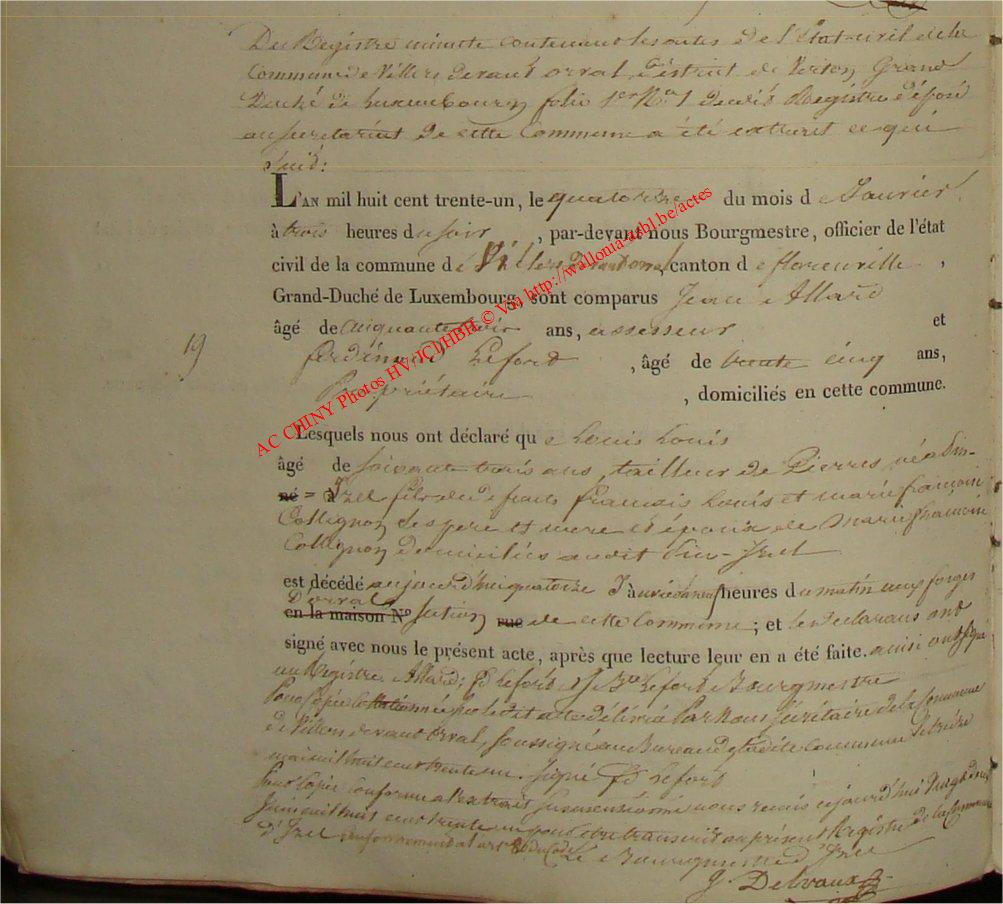 Du Registre minute contenant les actes de l'état-civil de la
Commune de Villers devant orval, district de Virton Grand
Duché de Luxembourg folio 1er No 1 dudit Registre déposé
au secretariat de cette Commune a été extrait ce qui
suid:
L'AN mil huit cent trente-un, le quatorze du mois de Janvier
à trois heures du soir, par-devant nous Bourgmestre, officier de l'état
civil de la commune de Villers devant Orval, canton de florenville,
Grand-Duché de Luxembourg, sont comparus Jean Allard
âgé de cinquante trois ans, assesseur et
19
ferdinand Lefort, âgé de trente cinq ans,
Propriétaire, domiciliés en cette commune.
AC CHINY Photos HV-JCl/HBH © Via http://wallonia-asbl.be/actes
Lesquels nous ont déclaré que Louis Louis
âgé de soixante trois ans, tailleur de Pierres, né a
né = à Izel fils de defunts francois Louis et marie francoise
Collignon ses pere et mere et époux de Marie francoise
Collignon domiciliés audit lieu Izel
est décédé aujourd'hui quatorze à heures du matin aux forges
D'orval
en la maison No section rue de cette Commune; et les declarans ont
signé avec nous le présent acte, après que lecture leur en a été faite. ainsi
au Registre Allard; fd Lefort et Lefort Bourgmestre
Pour Copie dudit acte délivrée Par Nous secrétaire de la Commune
de Villers devant Orval, soussigné au Bureau de ladite Commune
mil huit cent trente un. signé fd Lefort
Pour Copie conforme a l'extrait susmentionné nous remis cejourd'hui
Juin mil huit cent trente un pour être transcrit au présent Registre de la Commune
d'Izel conformement a l'art du Code Le Bourgmestre d'Izel
G. Delvaux